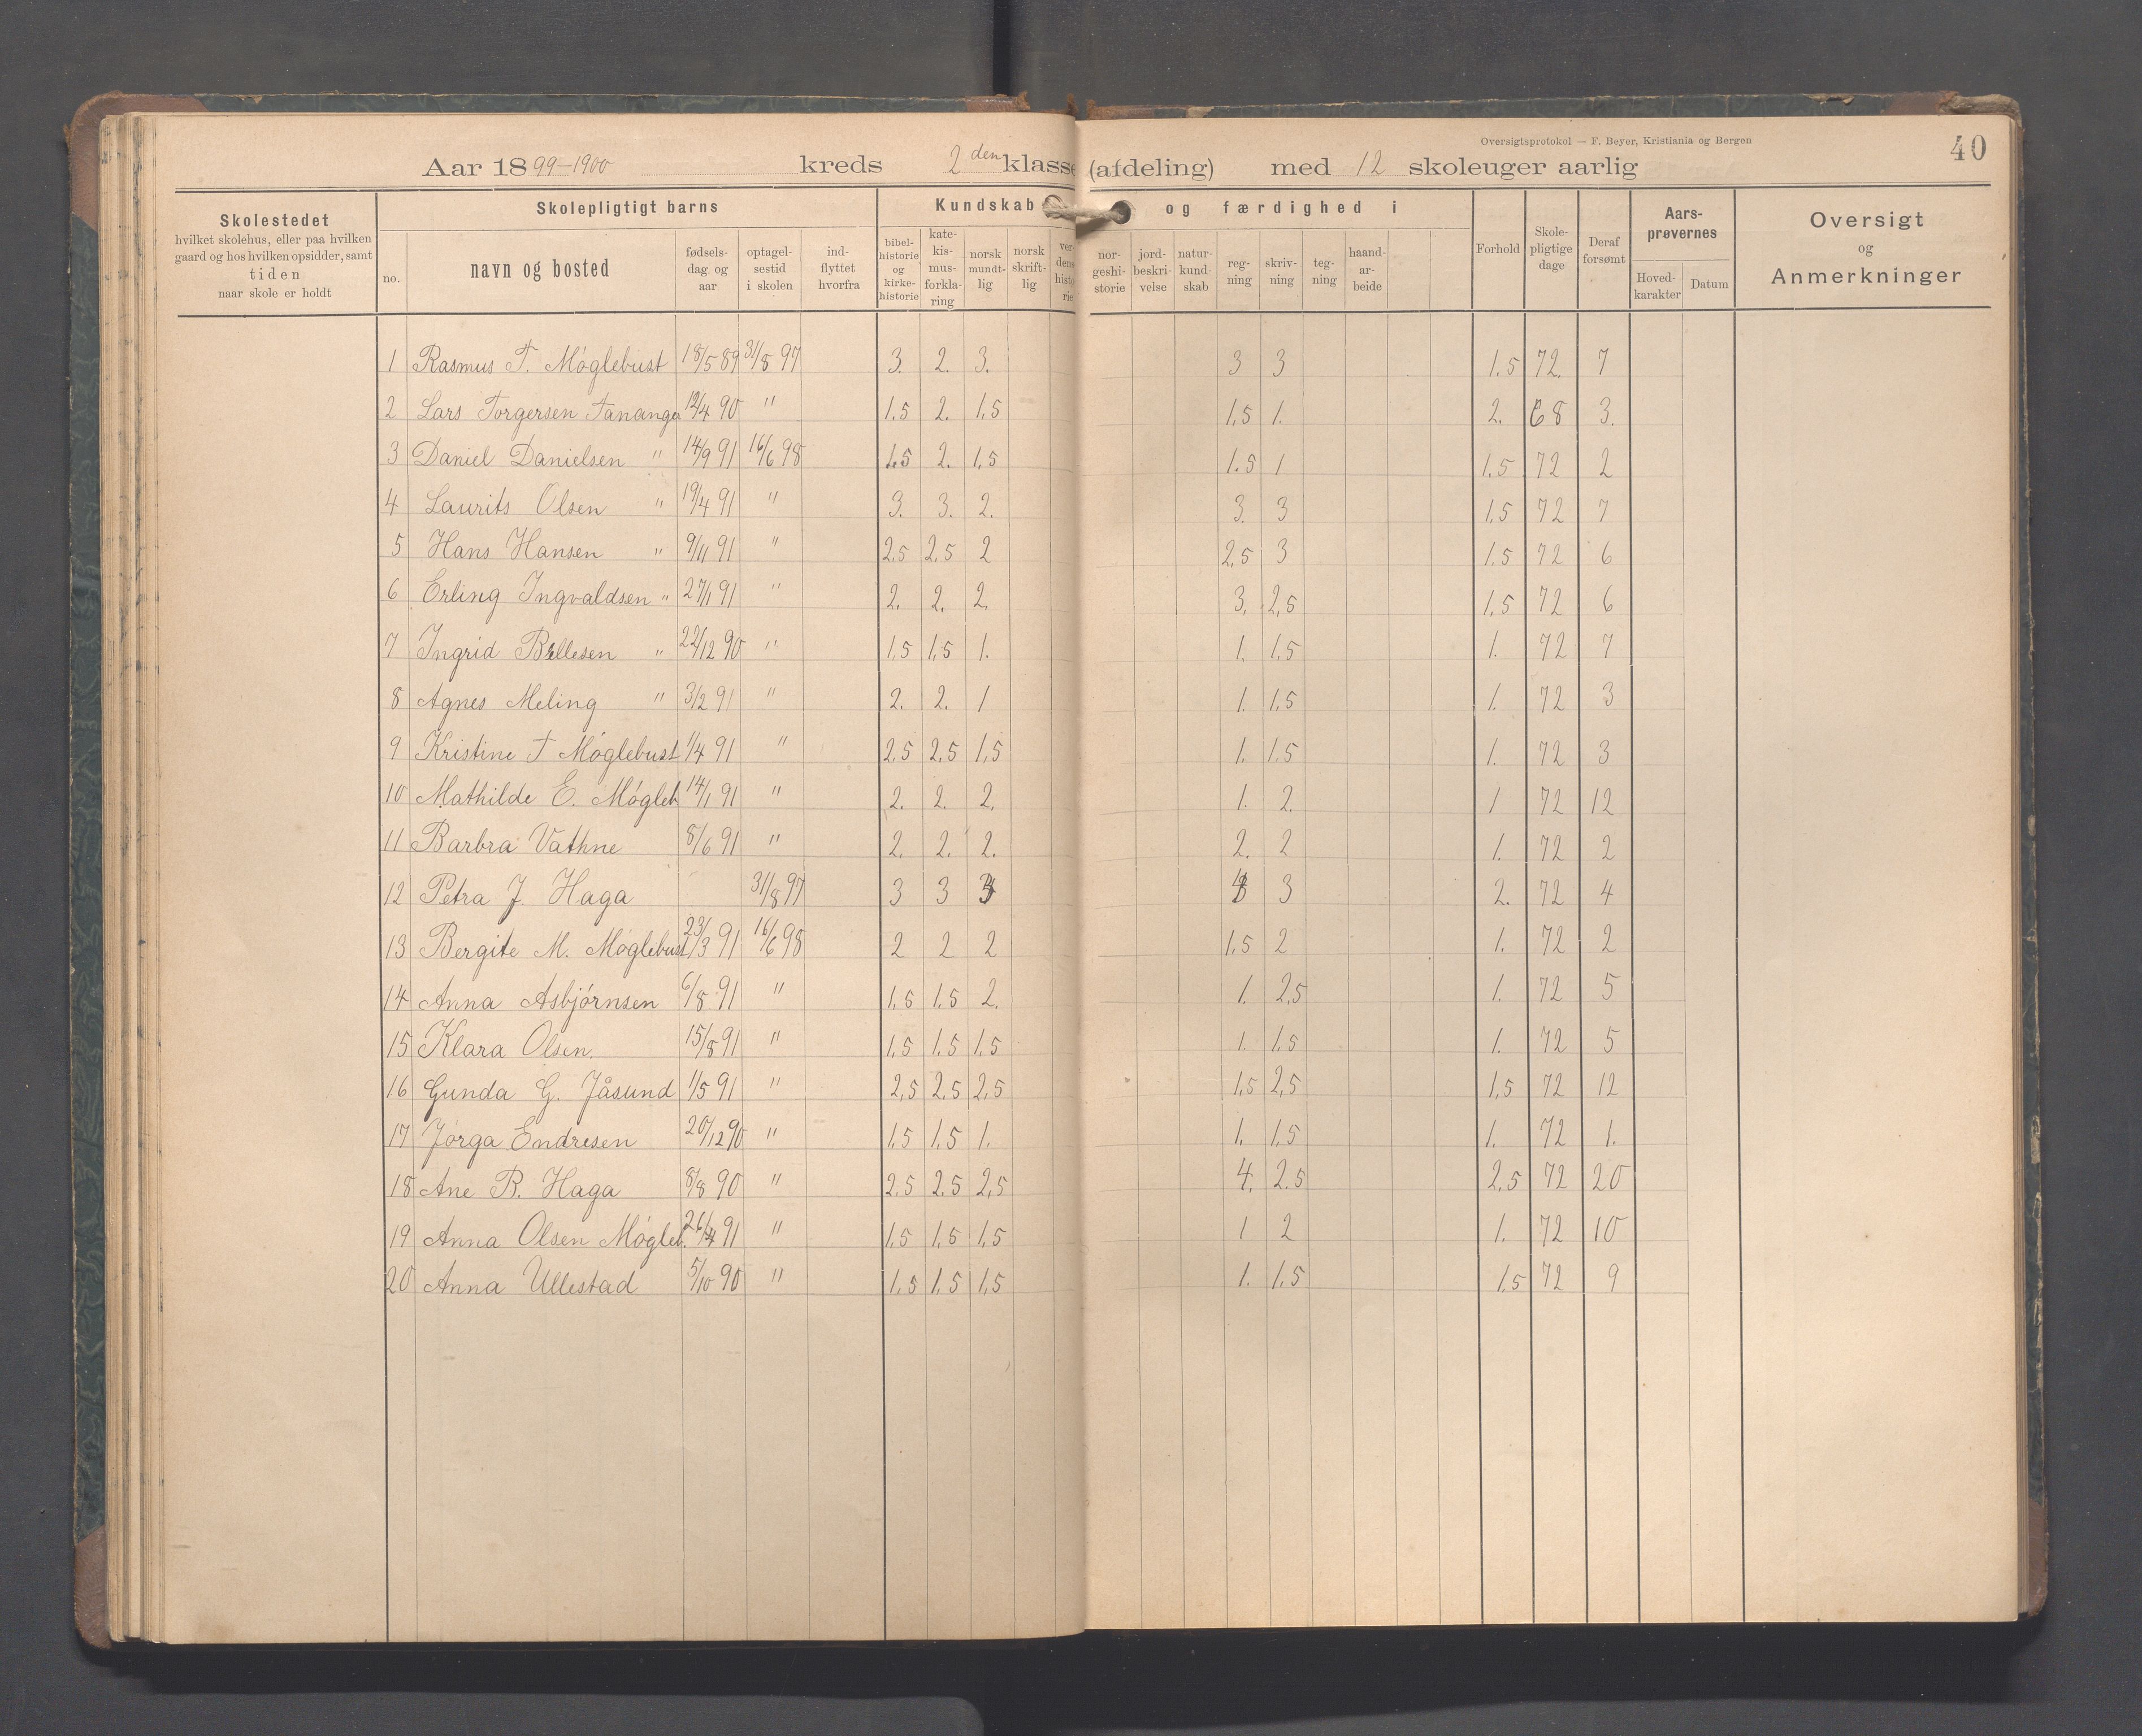 Oversigtsprotokol — F. Beyer, Kristiania og Bergen
40
Aar 1899-1900 kreds 2den klasse (afdeling) med 12 skoleuger aarlig
Skolestedet hvilket skolehus, eller paa hvilken gaard og hos hvilken opsidder, samt tiden naar skole er holdt
Skolepligtigt barns
Kundskab og færdighed i
no. navn og bosted fødsels-dag og aar optagel-sestid i skolen ind-flyttet hvorfra
bibel-historie og kirke-historie kate-kis-mus-forkla-ring norsk mundt-lig norsk skrift-lig ver-dens histo-rie nor-geshi-storie jord-beskri-velse natur-kund-skab reg-ning skriv-ning teg-ning haand-ar-beide
Forhold Skole-pligtige dage Deraf forsømt Aars-prøvernes Hoved-karakter Datum
Oversigt og Anmerkninger
1 Rasmus T. Møglebust 18/5 89 31/8 97 3. 2. 3. 3 3 1.5 72. 7
2 Lars Torgersen Tananger 12/4 90 " 1.5 2. 1,5 1,5 1. 2. 68 3.
3 Daniel Danielsen " 14/9 91 16/6 98 1.5 2. 1,5 1.5 1 1,5 72 2
4 Laurits Olsen " 19/4 91 " 3. 3. 2. 3. 3 1,5 72 7
5 Hans Hansen " 9/11 91 " 2,5 2,5 2 2,5 3 1.5 72 6
6 Erling Ingvaldsen " 27/1 91 " 2. 2. 2. 3. 2,5 1,5 72 6
7 Ingrid Bellesen " 22/12 90 " 1.5 1,5 1. 1. 1.5 1. 72 7
8 Agnes Meling " 3/2 91 " 2. 2. 1 1. 1.5 1. 72 3
9 Kristine T Møglebust 1/4 91 " 2,5 2,5 1,5 1. 1.5 1. 72 3
10 Mathilde E. Mógleb 14/1 91 " 2. 2. 2. 1. 2. 1 72 12
11 Barbra Vathne 8/6 91 " 2. 2. 2. 2. 2 1. 72 2
12 Petra J. Haga 31/8 97 3 3 3 3 2. 72 4
13 Bergite M. Møglebust 23/3 91 16/6 98 2 2 2 1.5 2 1. 72 2
14 Anna Asbjørnsen 6/8 91 " 1.5 1.5 2. 1. 2,5 1. 72 5
15 Klara Olsen. 15/8 91 " 1,5 1.5 1.5 1. 1.5 1. 72 5
16 Gunda G. Jåsund 1/5 91 " 2,5 2.5 2,5 1,5 2,5 1,5 72 12
17 Jørga Endresen 20/12 90 " 1.5 1,5 1. 1. 1.5 1. 72 1.
18 Ane B. Haga 8/8 90 " 2.5 2.5 2,5 4. 2.5 2,5 72 20
19 Anna Olsen Mógleb. 26/4 91 " 1,5 1,5 1,5 1 2 1. 72 10
20 Anna Ullestad 5/10 90 " 1.5 1.5 1,5 1. 1.5 1.5 72 9